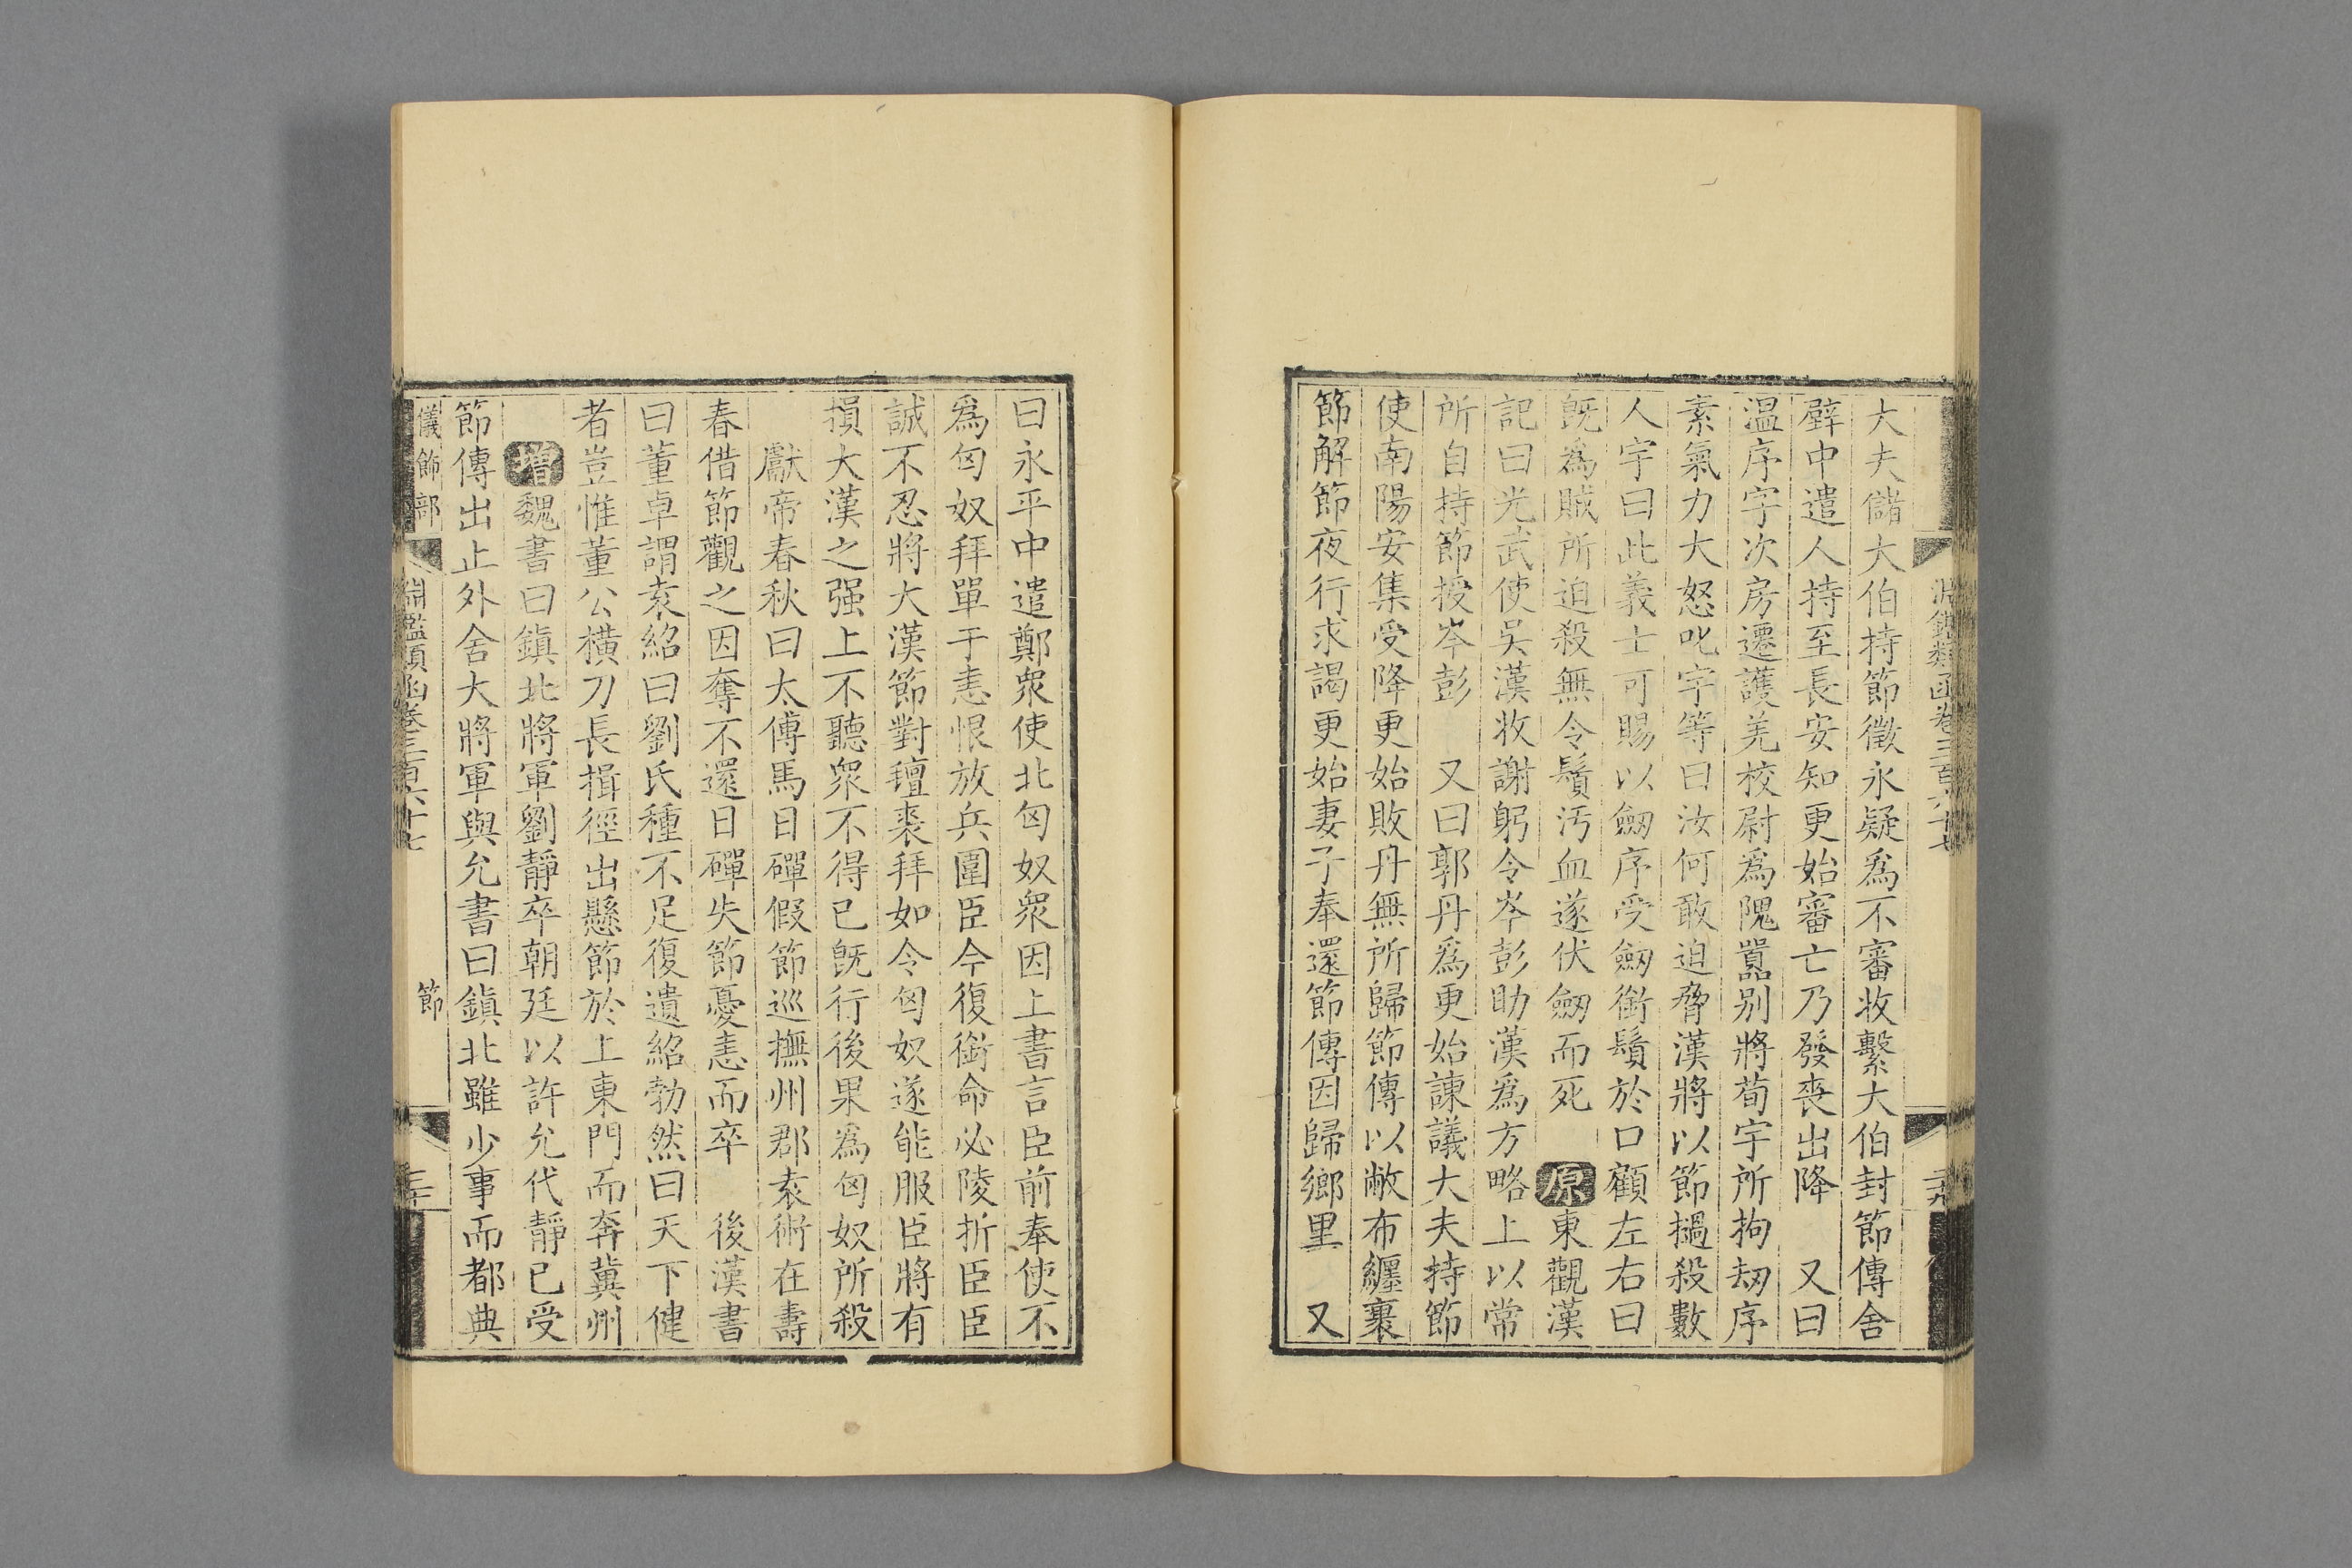 淵鑑類函卷三百六十七
二十九
大夫儲大伯持節徵永疑爲不審收繫大伯封節傳舍
壁中遣人持至長安知更始審亡乃發喪出降　又曰
温序字次房遷護羌校尉爲隗囂别將荀宇所拘刼序
素氣力大怒叱宇等曰汝何敢迫脅漢將以節撾殺數
人宇曰此義士可賜以劒序受劒銜鬚於口顧左右曰
旣爲賊所迫殺無令鬚汚血遂伏劒而死　原東觀漢
記曰光武使吳漢收謝躬令岑彭助漢爲方略上以常
所自持節授岑彭　又曰郭丹爲更始諫議大夫持節
使南陽安集受降更始敗丹無所歸節傳以敝布纏裹
節解節夜行求謁更始妻子奉還節傳因歸鄉里　又
曰永平中遣鄭衆使北匈奴衆因上書言臣前奉使不
爲匈奴拜單于恚恨放兵圍臣今復銜命必陵折臣臣
誠不忍將大漢節對氊裘拜如令匈奴遂能服臣將有
損大漢之强上不聽衆不得已旣行後果爲匈奴所殺
獻帝春秋曰太傅馬日磾假節巡撫州郡袁術在壽
春借節觀之因奪不還日磾失節憂恚而卒　後漢書
曰董卓謂袁紹曰劉氏種不足復遺紹勃然曰天下健
者豈惟董公横刀長揖徑出懸節於上東門而奔冀州
增魏書曰鎮北將軍劉靜卒朝廷以許允代靜已受
節傳出止外舍大將軍與允書曰鎮北雖少事而都典
儀飾部
淵鑑類函卷三百六十七
節
三十